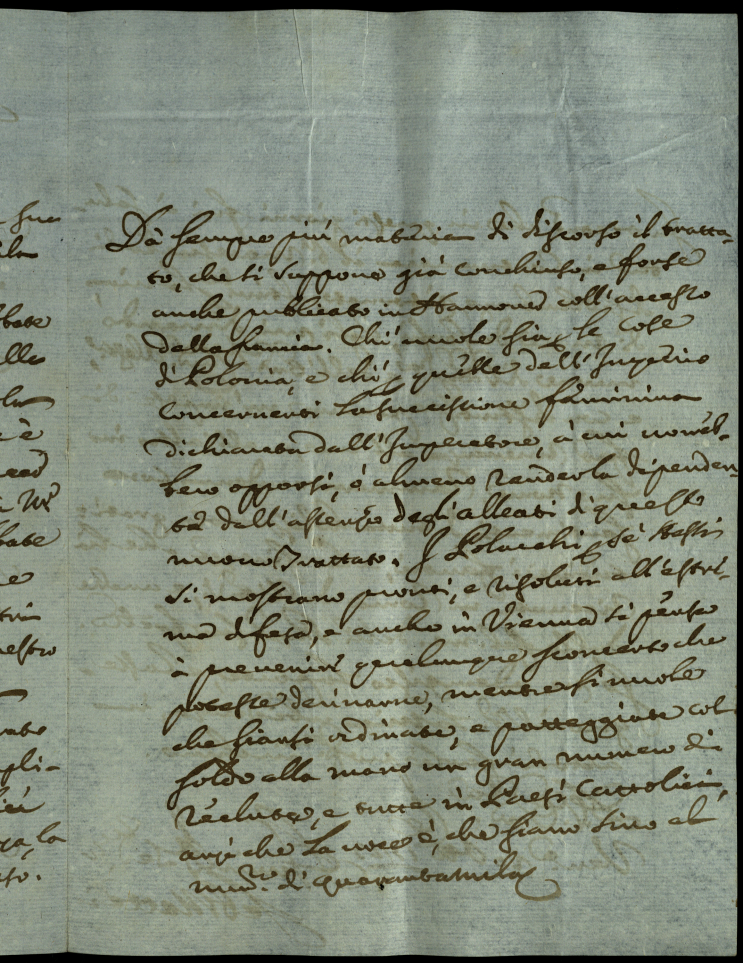 sua
bate
è
bate
la
Dà sempre più materia di discorso il tratta-
to, che si suppone già conchiuso, e forse
anche publicato in Hannover coll'accesso
della francia. Chi vuole sia p le cose
di Polonia, e chi p quelle dell'Imperio
concernenti la successione feminina
dichiarata dall'Imperatore, à cui vorreb-
bero opporsi, ò almeno renderla dipenden-
te dall'assenso degli alleati di questo
nuovo Trattato. I Polacchi p sè stessi
si mostrano pronti, e risoluti all'estre-
ma difesa, e anche in Vienna si pensa
à prevenire qualunque sconcerto che
potesse derivarne, mentre si vuole
che siansi ordinate, e patteggiate col
soldo alla mano un gran numero di
reclute, e tutte in Paesi Cattolici,
anzi che la voce è, che siano sino al
num.º di quarantamila